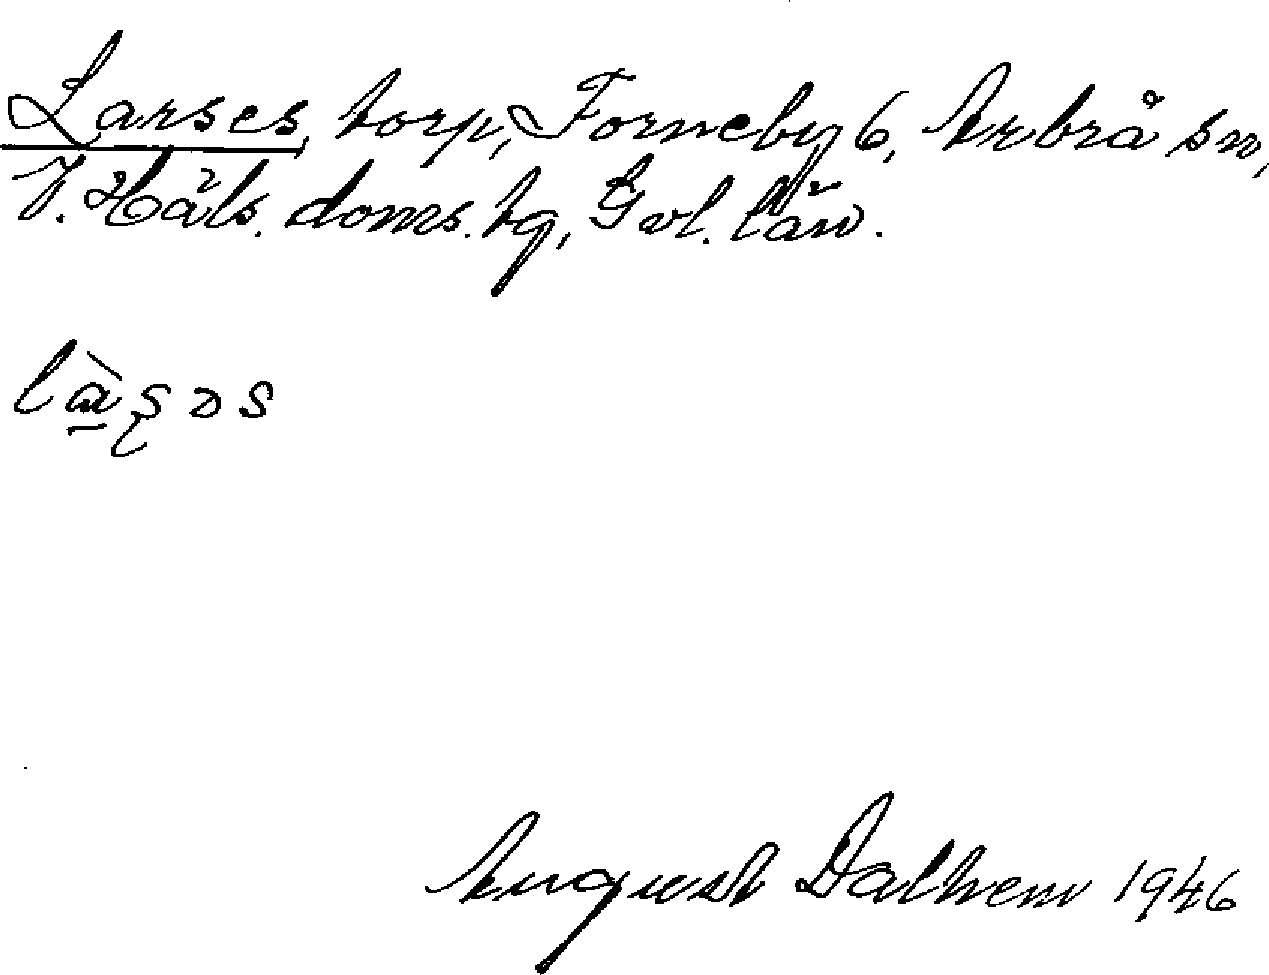 Larses, torp, Forneby 6, Arbrå sn,
V. Häls. doms. tg, Gvl. län.
August Dalhem 1946